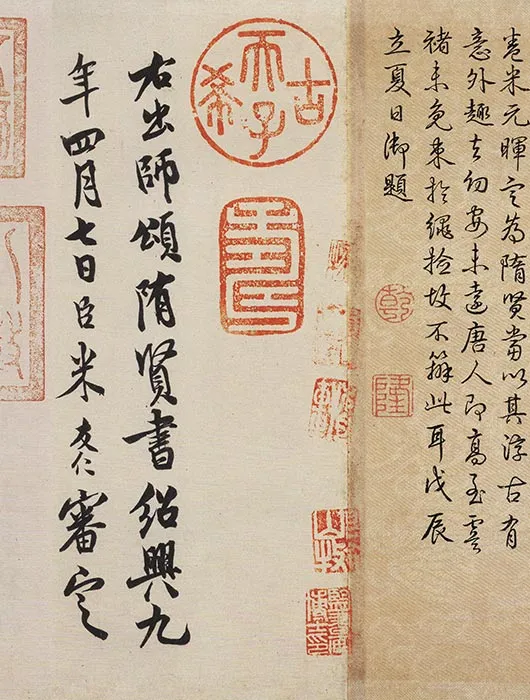 卷米元暉定為隋賢當以其淳古有
意外趣去幼安未遠唐人即高至虞
褚未免束於繩撿故不辦此耳戊辰
立夏日御題
乾
隆
古希天子
壽
右出師頌隋賢書紹興九
年四月七日臣米友仁審定